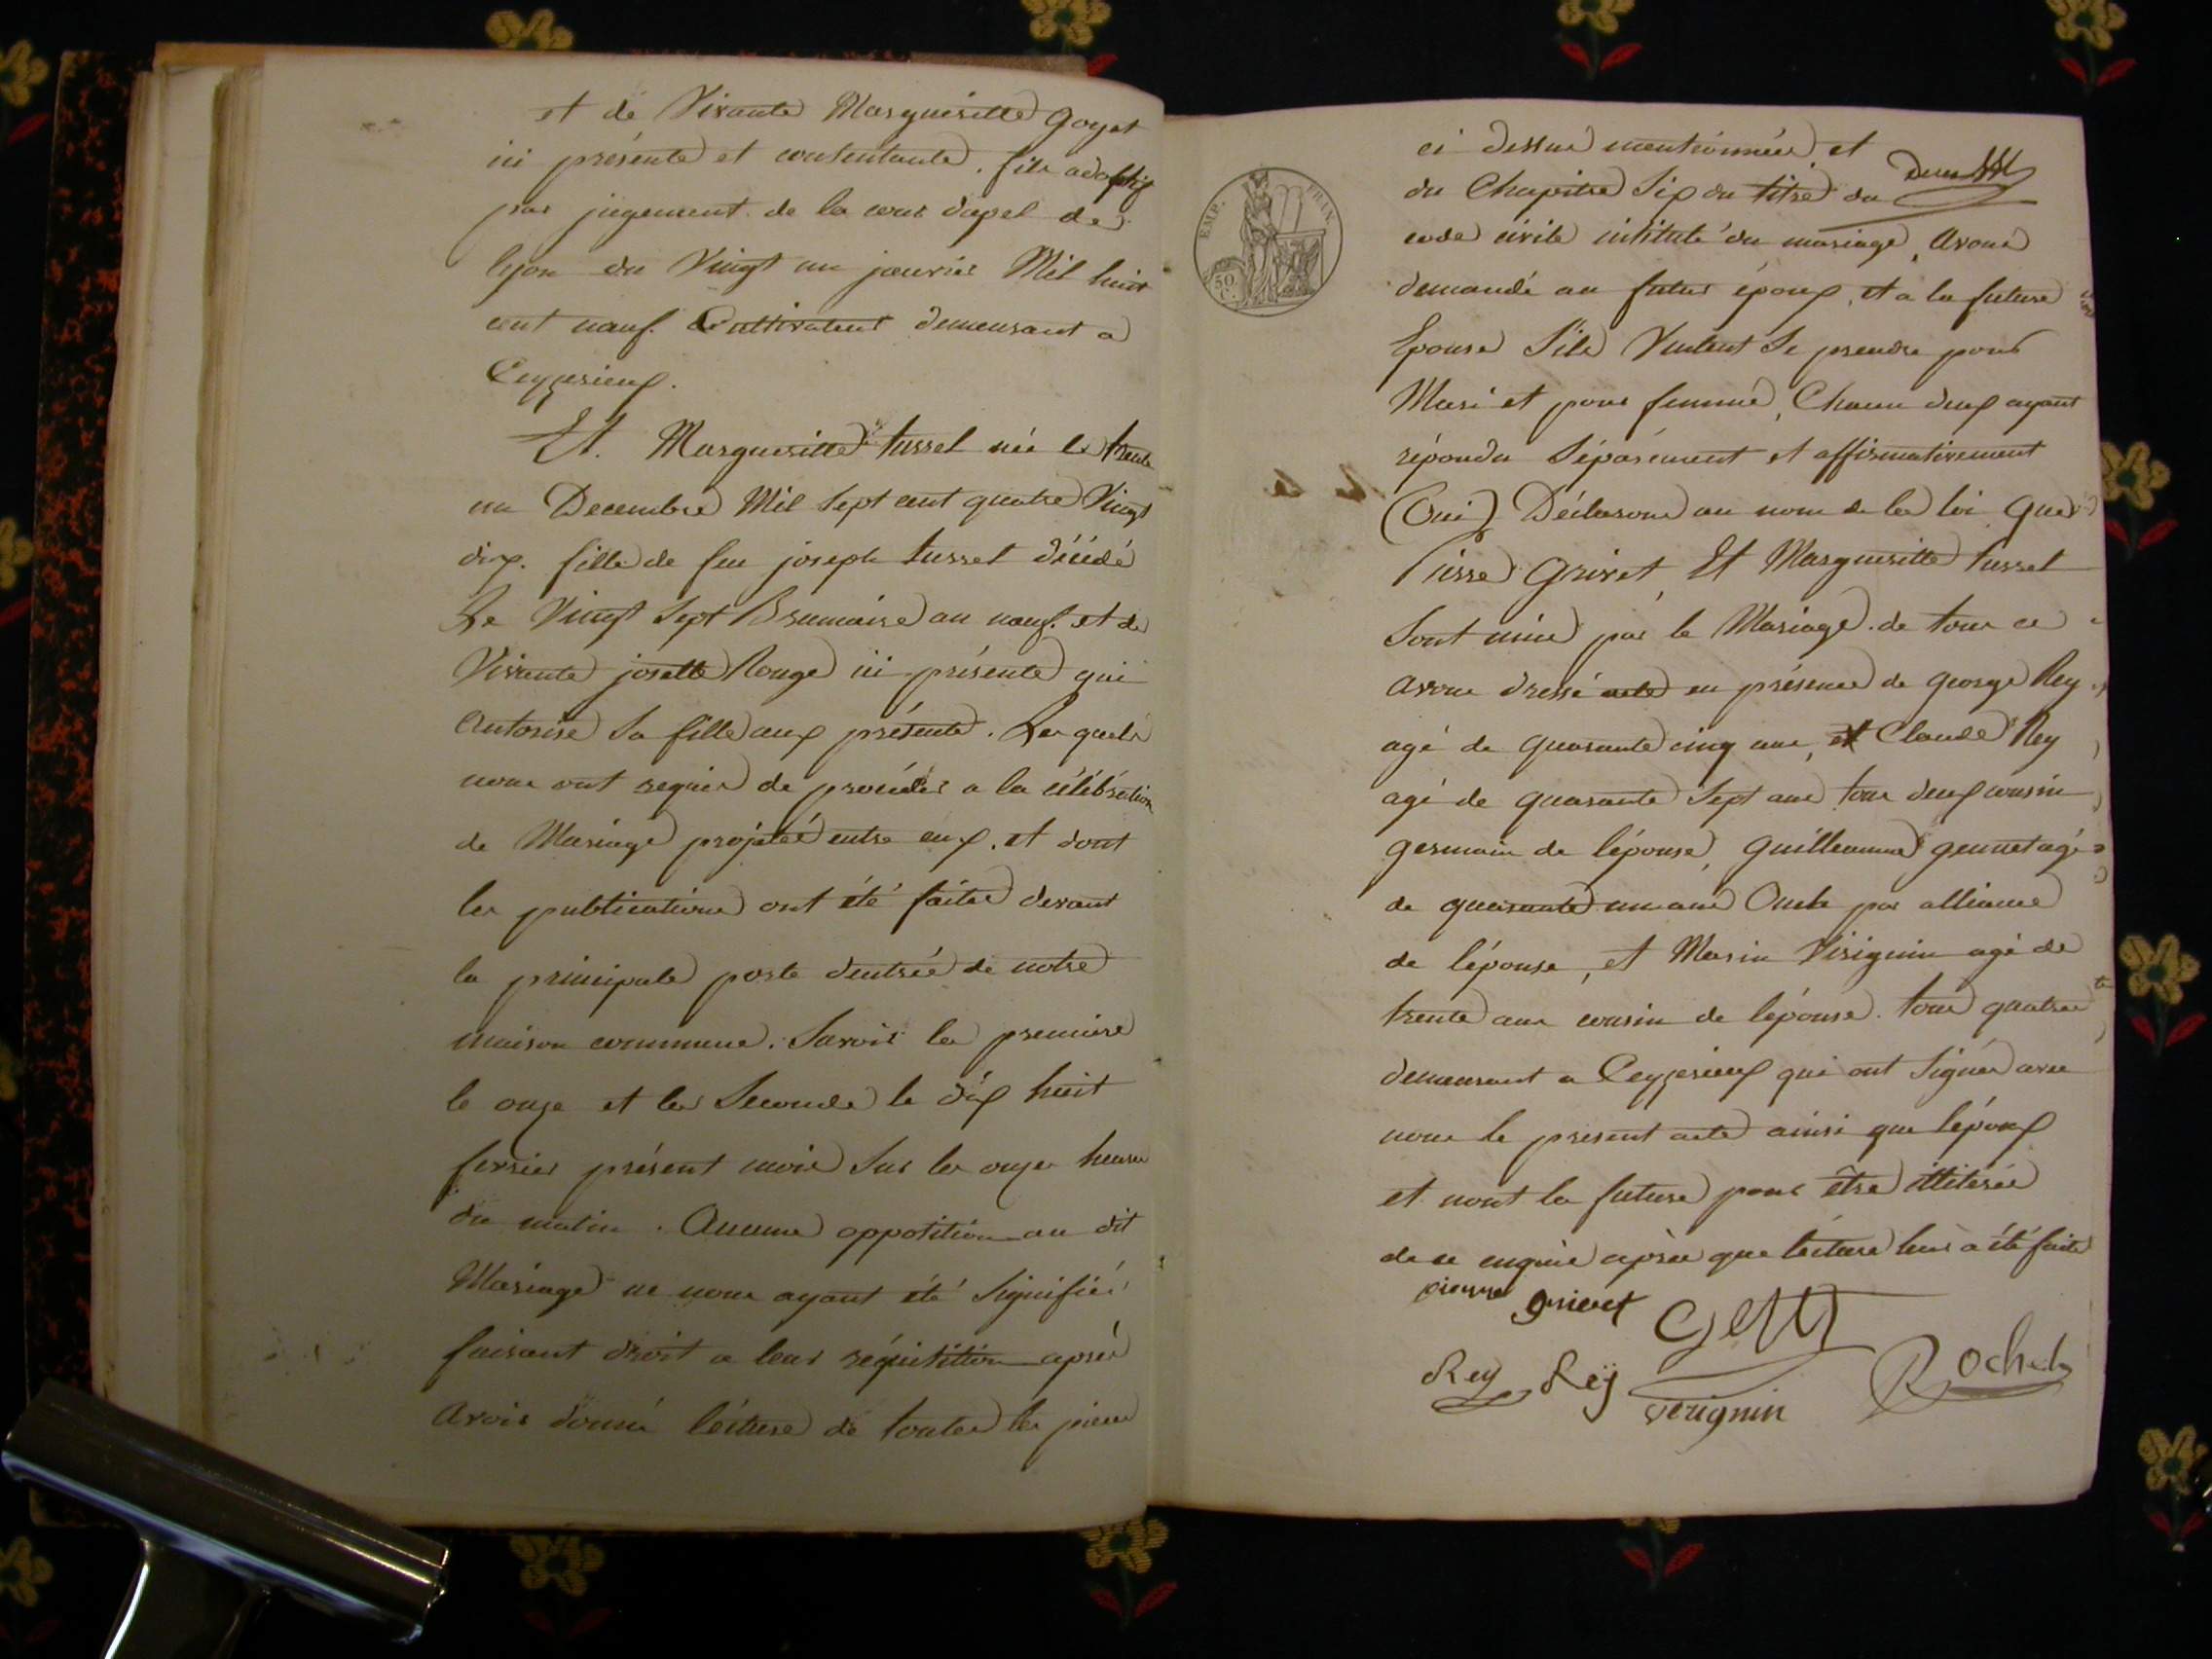 et de Vivante Margueritte Goyet
ici présente et consentante. fils adoptif
par jugement de la cour dapel de
lyon du Vingt un janvier Mil huit
cent nauf. Cultivateur demeurant a
Ceyzerieux.
Et. Margueritte tussel née le trente
un Decembre Mil Sept cent quatre Vingt
dix. fille de feu joseph tussel décédé
Le Vingt Sept Brumaire an nauf. et de
Vivante josette Rouge ici présente qui
Autorise Sa fille aux présente. Les quels
nous ont requis de procéder a la célébration
de Mariage projetée entre eux. et dont
les publications ont été faites devant
la principale porte dentrée de notre
maison commune. Savoir la premiere
le onze et la Seconde le dix huit
fevrier présent mois Sur les onzes heures
du matin. Aucune oppotition au dit
Mariage ne nous ayant été Signifiée,
faisant droit a leur réquisition après
Avoir donné lécture de toutes les pieces
EMP. FRIX
50 C.
ci dessus mentionnées et
du Chapitre Six du titre du
code civile intitulé du mariage, Avons
demandé au futur époux, et a la future
Epouse S'ils Veulent Se prendre pour
Mari et pour femme, Chacun deux ayant
répondu Séparément et affirmativement
(Oui) Déclarons au nom de la loi que
Pierre Grivet, Et Margueritte tussel
Sont unis par le Mariage. de tous ce
avons dressé acte en présence de George Rey
agé de quarante cinq ans, et Claude Rey
agé de quarante Sept ans tous deux cousin
germain de lépouse, Guilleaume gennet agé
de quarante un ans Oncle par alliance
de lépouse, et Marin Virignin agé de
trente ans cousin de lépouse. tous quatres
demeurant a Ceyzerieux qui ont Signés avec
nous le present acte ainsi que lépoux
et nont la future pour être illiterée
de ce enquie après que lécture leur a été faite
pierre grivet
Rey Rey virignin Rochet